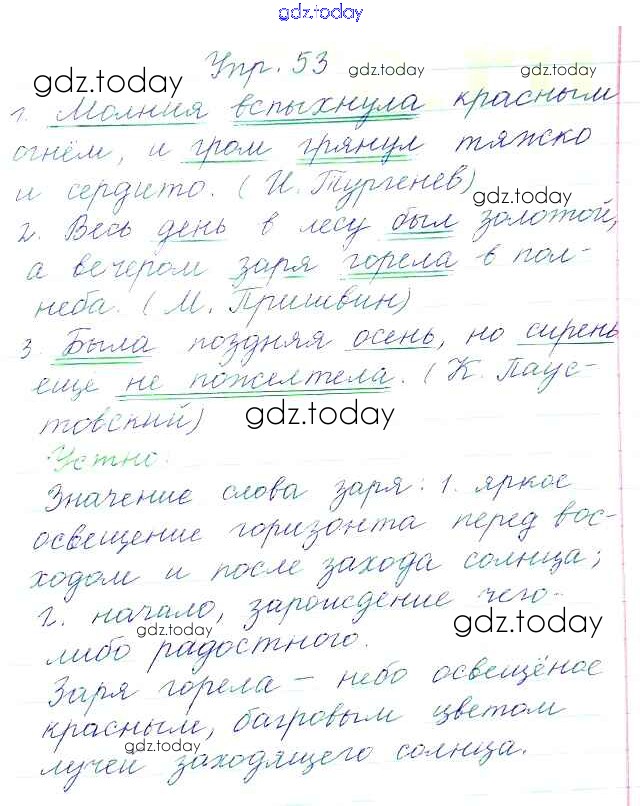 gdz.today
Упр. 53
gdz.today gdz.today
1. Молния вспыхнула красным
огнём, и гром грянул тяжко
и сердито. (И. Тургенев)
gdz.today
2. Весь день в лесу был золотой,
а вечером заря горела в пол-
неба. (М. Пришвин)
3. Была поздняя осень, но сирень
ещё не пожелтела. (К. Паус-
товский)
gdz.today
Устно:
Значение слова заря: 1. яркое
освещение горизонта перед вос-
ходом и после захода солнца;
2. начало, зарождение чего-
gdz.today gdz.today
либо радостного.
Заря горела – небо освещёное
красным, багровым цветом
gdz.today
лучей заходящего солнца.